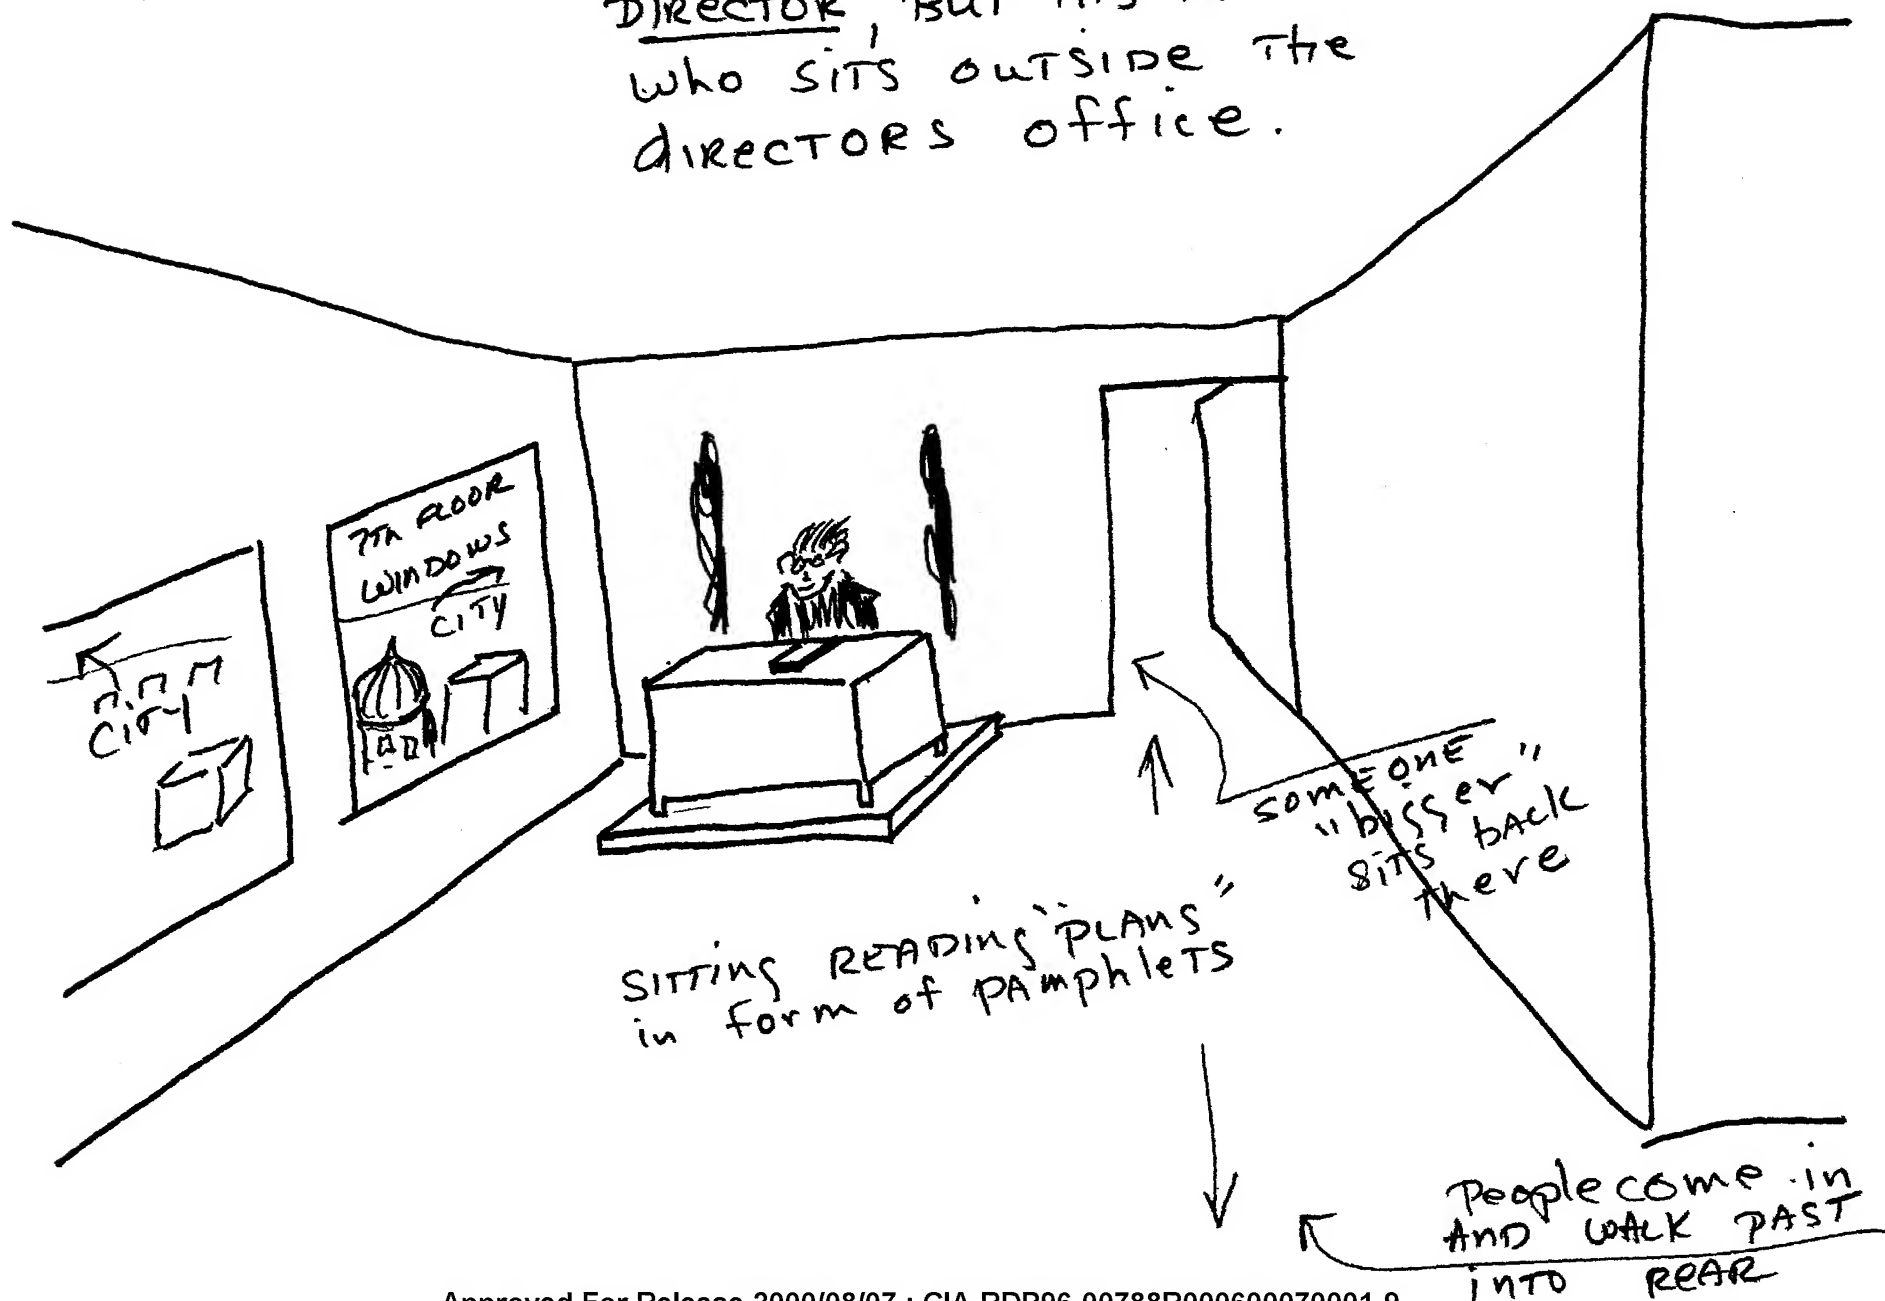 DIRECTOR, BUT HIS
who SITS OUTSIDE The
dIRECTORS office.
7Th FLOOR
WINDOWS
CITY
CITY
someone
"bigger"
SITS back
there
SITTING READING "PLANS"
in form of PAmphleTS
People come in
AND WALK PAST
INTO REAR
Approved For Release 2000/08/07 : CIA-RDP96-00788R000600070001-9